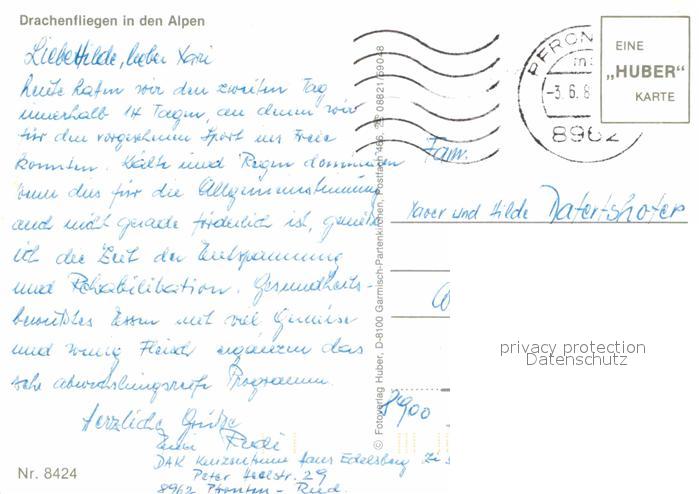 Drachenfliegen in den Alpen
Liebe Hilde, lieber Xari
heute haben wir den zweiten Tag
innerhalb 14 Tagen, an denen wir
für den vorgesehenen Sport ins Freie
konnten. Kälte und Regen dominieren
wenn dies für die Allgemeinstimmung
auch nicht gerade förderlich ist, genieße
ich die Zeit der Entspannung
und Rehabilitation. Gesundheits-
bewußtes Essen mit viel Gemüse
und wenig Fleisch ergänzen das
sehr abwechslungsreiche Programm.
Herzliche Grüße
Euer Rudi
DAK Kurzentrum Haus Edelsberg
Peter Heel str. 29
8962 Pfronten - Ried
Nr. 8424
© Fotoverlag Huber, D-8100 Garmisch-Partenkirchen, Postfach 466, 08821/59048
PFRON
-3.6.8
8962
EINE
„HUBER"
KARTE
Fam.
Xaver und Hilde Datertshofer
8900
privacy protection
Datenschutz